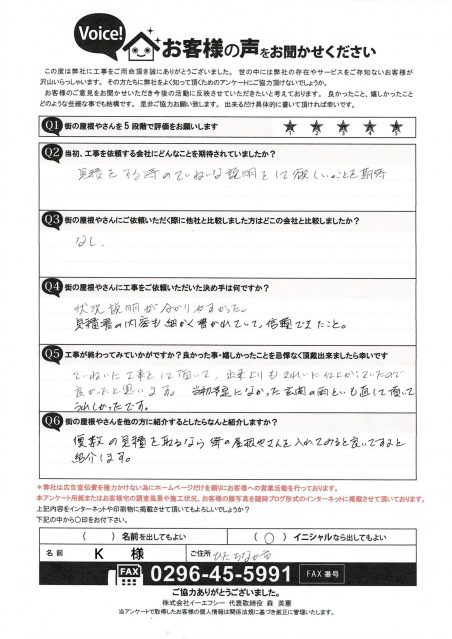 Voice!
お客様の声をお聞かせください
この度は弊社に工事をご用命頂き誠にありがとうございました。世の中には弊社の存在やサービスをご存知ないお客様が
沢山いらっしゃいます。その方たちに弊社をよく知って頂くためのアンケートにご協力頂けないでしょうか。
お客様のご意見をお聞かせいただき今後の活動に反映させていただきたいと考えております。良かったこと、嬉しかったこと
どのような些細な事でも結構です。是非ご協力お願い致します。出来るだけ具体的に書いて頂ければ幸いです。
Q1 街の屋根やさんを5段階で評価をお願いします
1 2 3 4 5
Q2 当初、工事を依頼する会社にどんなことを期待されていましたか?
見積をする時のていねいな説明をして欲しいことを期待
Q3 街の屋根やさんにご依頼いただく際に他社と比較しました方はどこの会社と比較しましたか?
なし、
Q4 街の屋根やさんに工事をご依頼いただいた決め手は何ですか?
状況説明が分かりやすかった。
見積書の内容も細かく書かれていて、信頼できたこと。
Q5 工事が終わってみていかがですか?良かった事・嬉しかったことを忌憚なく頂戴出来ましたら幸いです
ていねいに工事をして頂いて、出来よりもきれいに仕上がっていたので
良かったと思います。 になった玄関の雨といも直して頂いて
うれしかったです。
Q6 街の屋根やさんを他の方に紹介するとしたらなんと紹介しますか?
複数の見積を取るなら街の屋根やさんを入れてみると良いですよと
紹介します。
*弊社は広告宣伝費を極力かけない為にホームページだけを頼りにお客様への営業活動を行っております。
本アンケート用紙またはお客様宅の調査風景や施工状況、お客様の顔写真を随時ブログ形式のインターネットに掲載させて頂いております。
上記内容をインターネットや印刷物に掲載させて頂いてもよろしいでしょうか?
下記の中から〇印をお付下さい。
( )名前を出してもよい
(〇)イニシャルなら出してもよい
名前 K 様 ご住所 ひたちなか市
FAX 0296-45-5991 FAX番号
ご協力ありがとうございました。
株式会社イーエフシー 代表取締役 森 英憲
当アンケートで取得したお客様の個人情報は関係法規に基づき厳正に管理いたします。